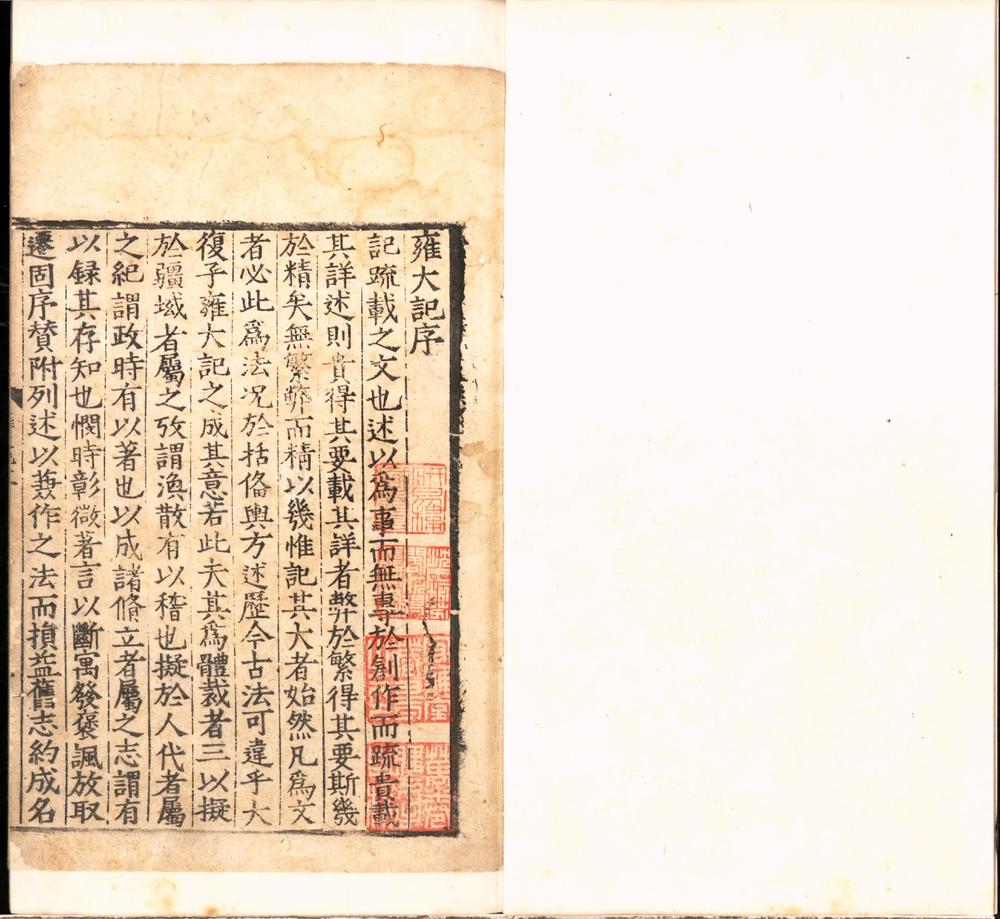 雍大記序
記䟽載之文也述以為事而無專於創作而䟽貴載
其詳述則貴得其要載其詳者弊於繁得其要斯幾
於精矣無繁弊而精以幾惟記其大者始然凡為文
者必此爲法况於括俻輿方述歷今古法可違乎大
復子雍大記之成其意若此夫其爲體裁者三以擬
於疆域者屬之攷謂渙散有以稽也擬於人代者屬
之紀謂政時有以著也以成諸脩立者屬之志謂有
以録其存知也憫時彰微著言以斷寓發褒諷放取
遷固序賛附列述以兼作之法而損益舊志約成名